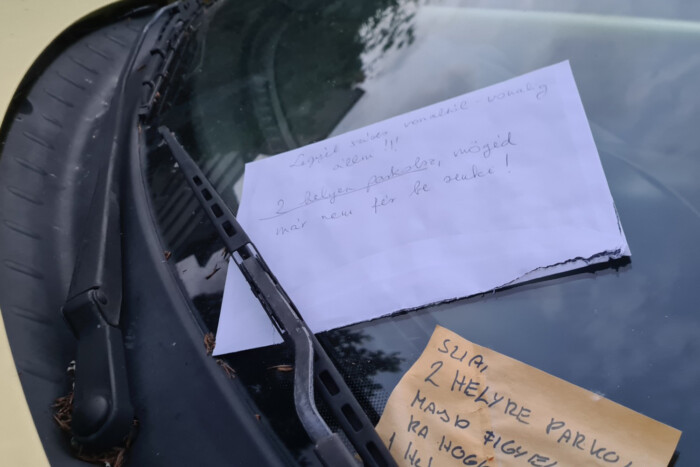 Legyél szíves vonaltól vonalig
állni!!!
2 helyen parkolsz, mögéd
már nem fér be senki!
SZIA,
2 HELYRE PARKO
MAJD FIGYE
RA HOGY
1